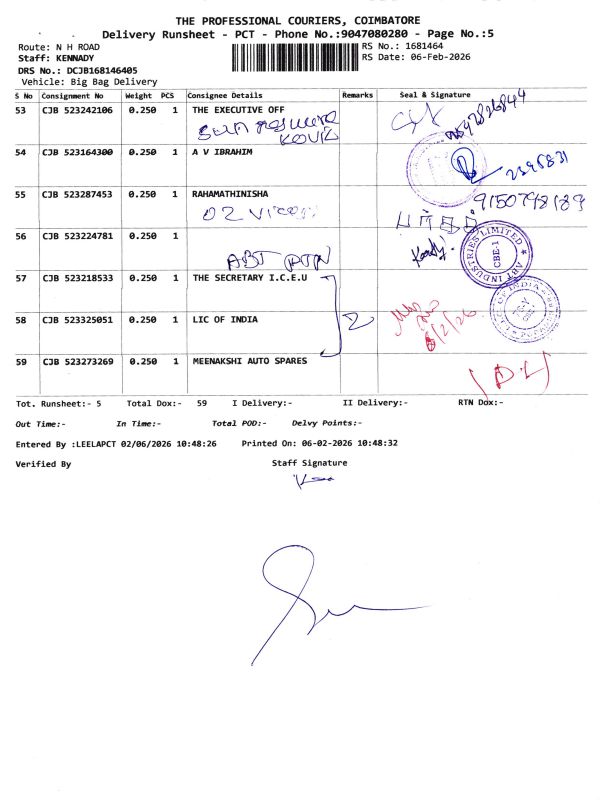 THE PROFESSIONAL COURIERS, COIMBATORE
Delivery Runsheet - PCT - Phone No.:9047080280 - Page No.:5
Route: N H ROAD
RS No.: 1681464
Staff: KENNADY
RS Date: 06-Feb-2026
DRS No.: DCJB168146405
Vehicle: Big Bag Delivery
S No Consignment No Weight PCS Consignee Details Remarks Seal & Signature
53 CJB 523242106 0.250 1 THE EXECUTIVE OFF
KOVIL
54 CJB 523164300 0.250 1 A V IBRAHIM
55 CJB 523287453 0.250 1 RAHAMATHINISHA
9150798189
56 CJB 523224781 0.250 1
ABT
ABT INDUSTRIES LIMITED
CBE-1
57 CJB 523218533 0.250 1 THE SECRETARY I.C.E.U
58 CJB 523325051 0.250 1 LIC OF INDIA
2
6/2/26
59 CJB 523273269 0.250 1 MEENAKSHI AUTO SPARES
(DL)
Tot. Runsheet:- 5 Total Dox:- 59 I Delivery:- II Delivery:- RTN Dox:-
Out Time:- In Time:- Total POD:- Delvy Points:-
Entered By :LEELAPCT 02/06/2026 10:48:26 Printed On: 06-02-2026 10:48:32
Verified By Staff Signature